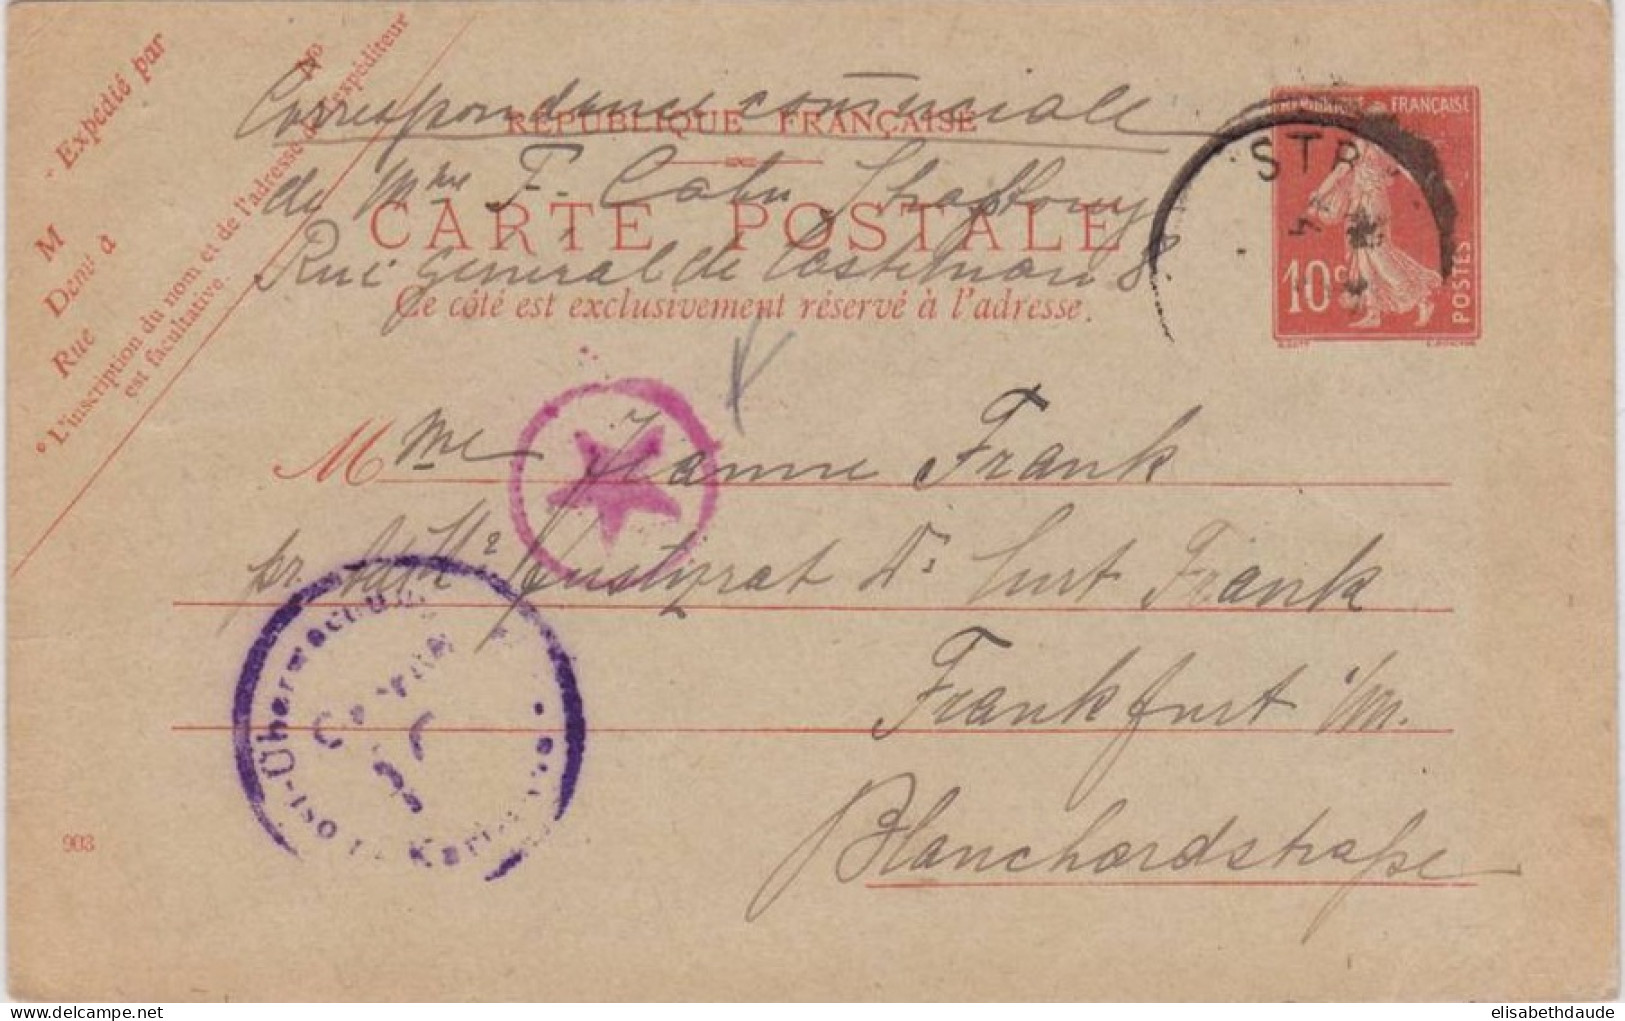 Expédié par
M
Demt à
Rue
No
* L'inscription du nom et de l'adresse de l'expéditeur
est facultative.
Correspondance commerciale
RÉPUBLIQUE FRANÇAISE
de Mme F. Cahn
CARTE POSTALE
Rue général de Castelnau 8
Ce côté est exclusivement réservé à l'adresse.
RÉPUBLIQUE FRANÇAISE
STR
10c
POSTES
Mme Jeanne Frank
pr. Justizrat Dr Curt Frank
Frankfurt a/m.
Blanchardstraße
Post-Überwachung
903
elisabethdaude